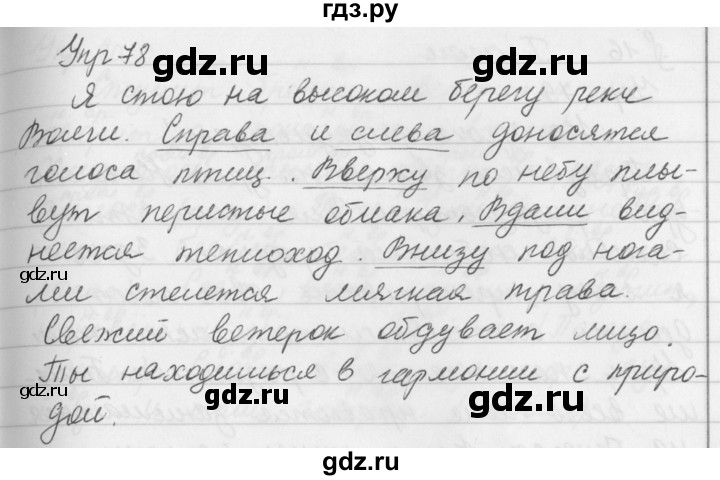 гдз.ру
Упр 78
Я стою на высоком берегу реки
Волги. Справа и слева доносятся
голоса птиц. Вверху по небу плы-
вут перистые облака. Вдали вид-
неется теплоход. Внизу под нога-
ми стелется мягкая трава.
Свежий ветерок обдувает лицо.
Ты находишься в гармонии с приро-
дой.
gdz.ru
gdz.ru
gdz.ru
gdz.ru
gdz.ru
gdz.ru
gdz.ru
gdz.ru
gdz.ru
gdz.ru
gdz.ru